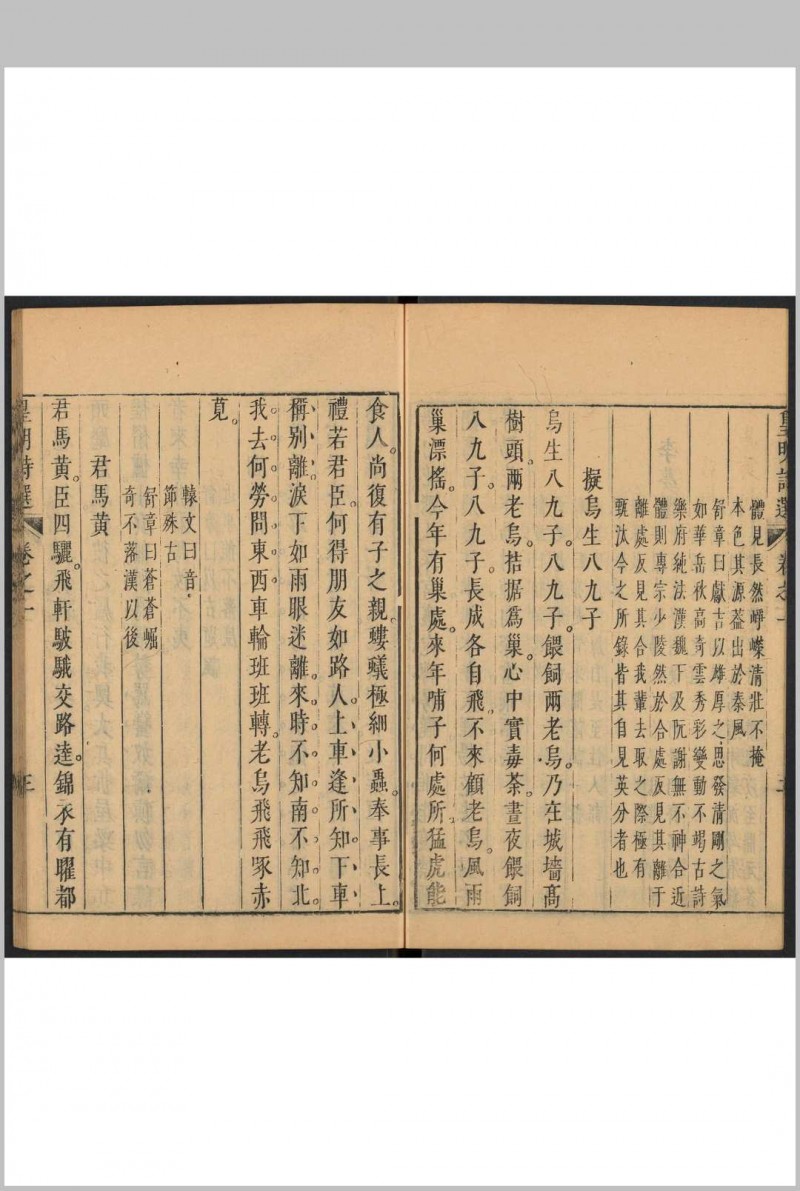 皇明詩選
卷之一
體見長然崢嶸清壯不掩
本色其源蓋出於秦風
舒章曰獻吉以雄厚之思發清剛之氣
如華岳秋高奇雲秀彩變動不竭古詩
樂府純法漢魏下及阮謝無不神合近
體則專宗少陵然於合處反見其離于
離處反見其合我輩去取之際極有
甄汰今之所錄皆其自見英分者也
擬烏生八九子
烏生八九子。八九子。餵飼兩老烏。乃在城墻高
樹頭。兩老烏。拮据爲巢。心中實毒荼。晝夜餵飼
八九子。八九子。長成各自飛。不來顧老烏。風雨
巢漂搖。今年有巢處。來年哺子何處所。猛虎能
食人。尚復有子之親。螻蟻極細小蟲。奉事長上。
禮若君臣。何得朋友如路人。上車逢所知。下車
稱别離。淚下如雨眼迷離。來時不知南不知北。
我去何勞問東西。車輪班班轉。老烏飛飛啄赤
莧。
轅文曰音
節殊古
舒章曰蒼蒼崛
奇不落漢以後
君馬黄
君馬黄。臣四驪。飛軒駊騀交路逵。錦衣有曜都
皇明詩選
卷之一
三